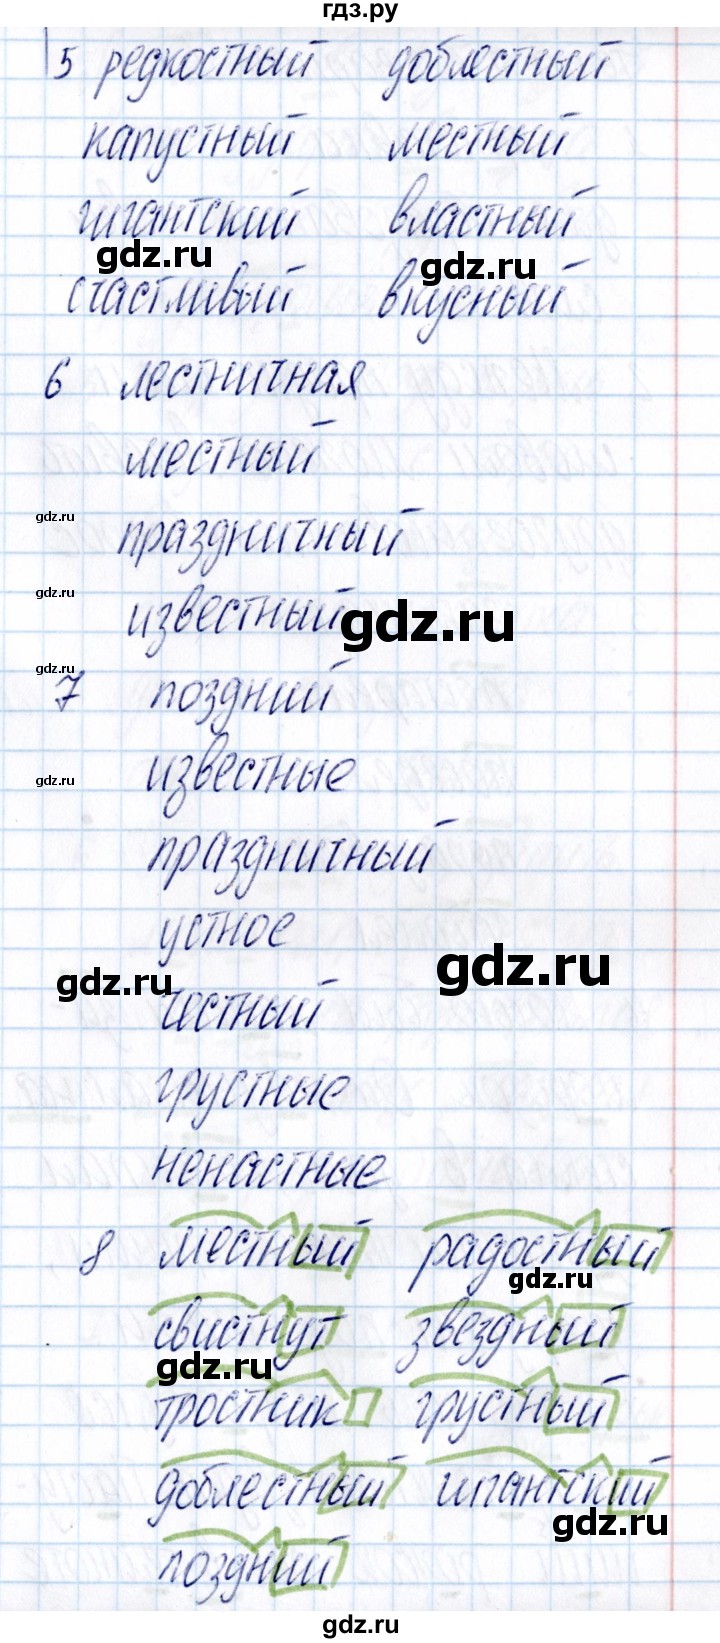 гдз.ру
5 редкостный доблестный
капустный местный
гигантский властный
gdz.ru gdz.ru
счастливый вкусный
6 лестничная
местный
gdz.ru
праздничный
gdz.ru
известный gdz.ru
gdz.ru
7 поздний
gdz.ru
известные
праздничный
устное
gdz.ru gdz.ru
честный
грустные
ненастные
8 местный радостный
gdz.ru
свистнут звездный
gdz.ru
тростник грустный
доблестный гигантский
gdz.ru
поздний
gdz.ru